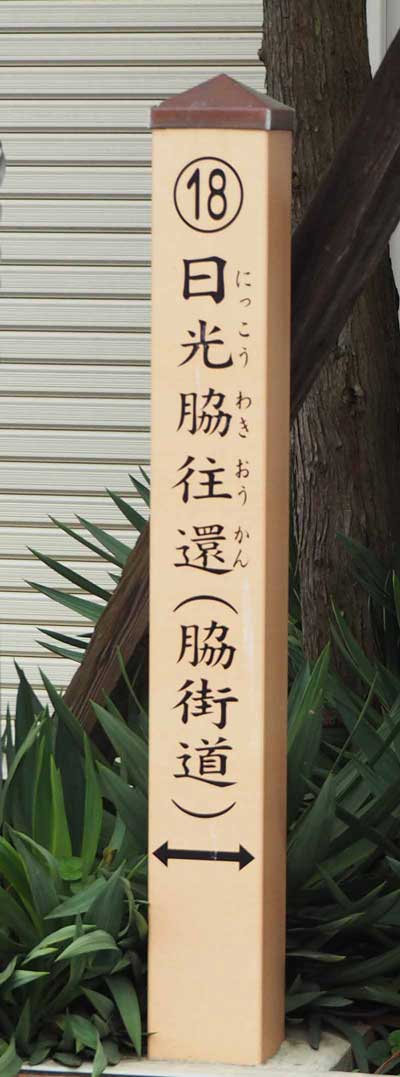 ⑱
日光脇往還(脇街道)
にっこうわきおうかん